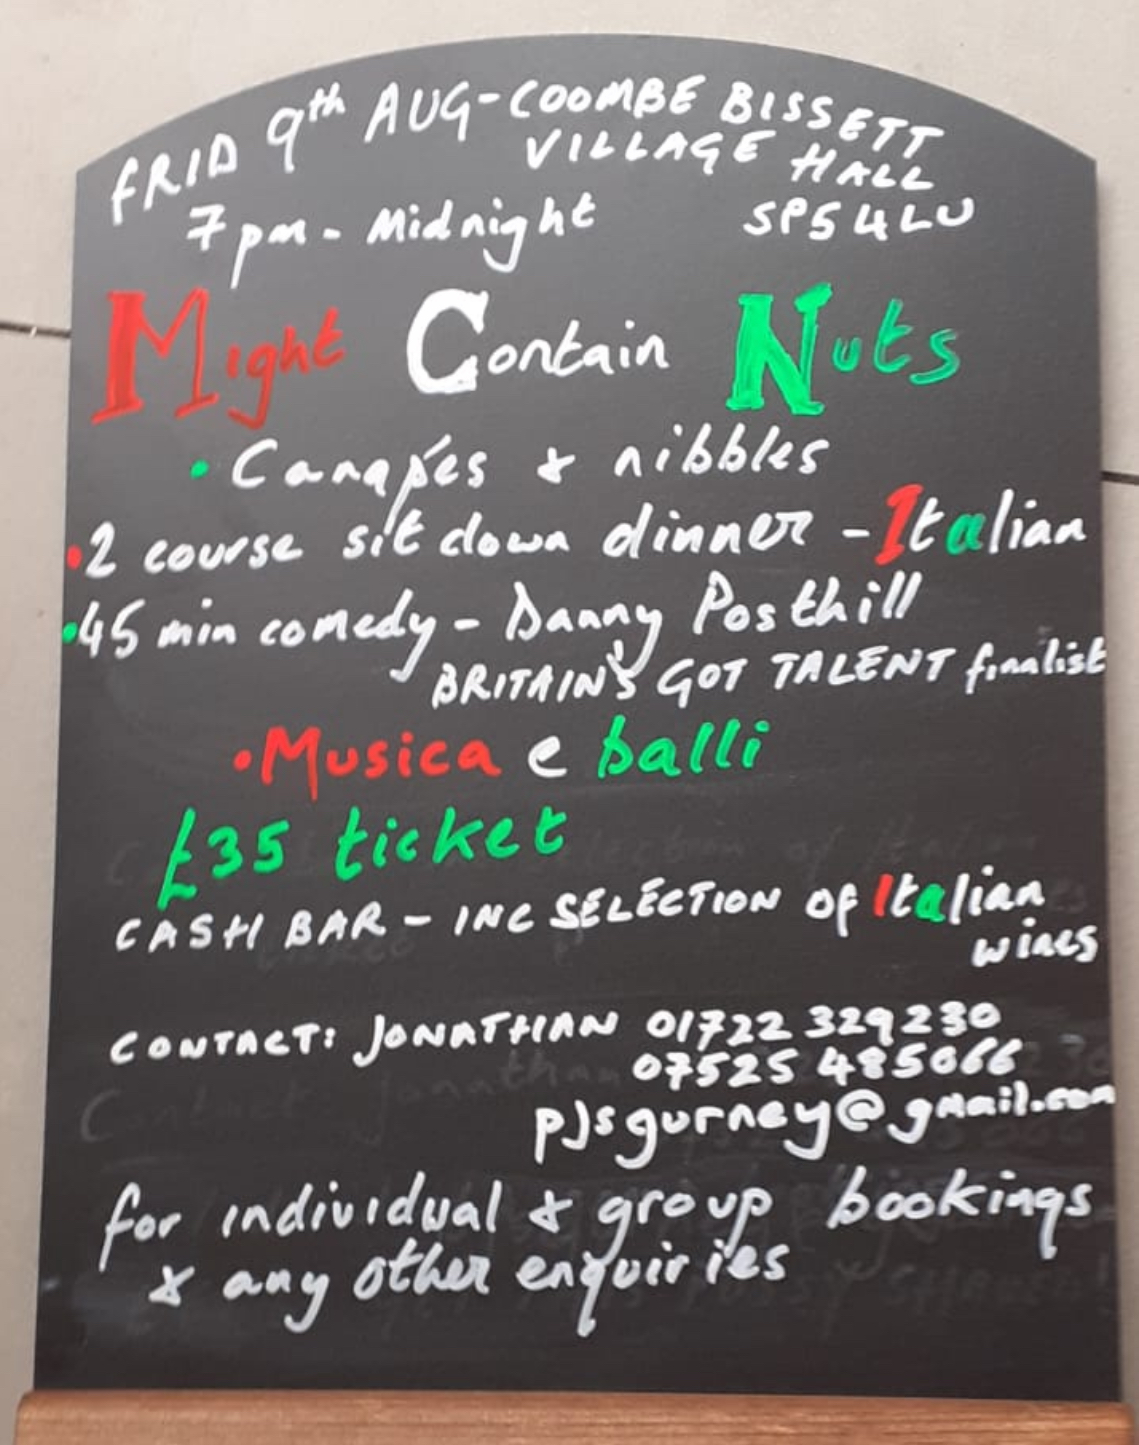 FRID 9th AUG - COOMBE BISSETT
VILLAGE HALL
7pm - Midnight SP5 4LU
Might Contain Nuts
• Canapés & nibbles
• 2 course sit down dinner - Italian
• 45 min comedy - Danny Posthill
BRITAIN'S GOT TALENT finalist
• Musica e balli
£35 ticket
CASH BAR - INC SELECTION of Italian
wines
CONTACT: JONATHAN 01722 329230
07525 485066
pjsgurney@gmail.com
for individual & group bookings
& any other enquiries